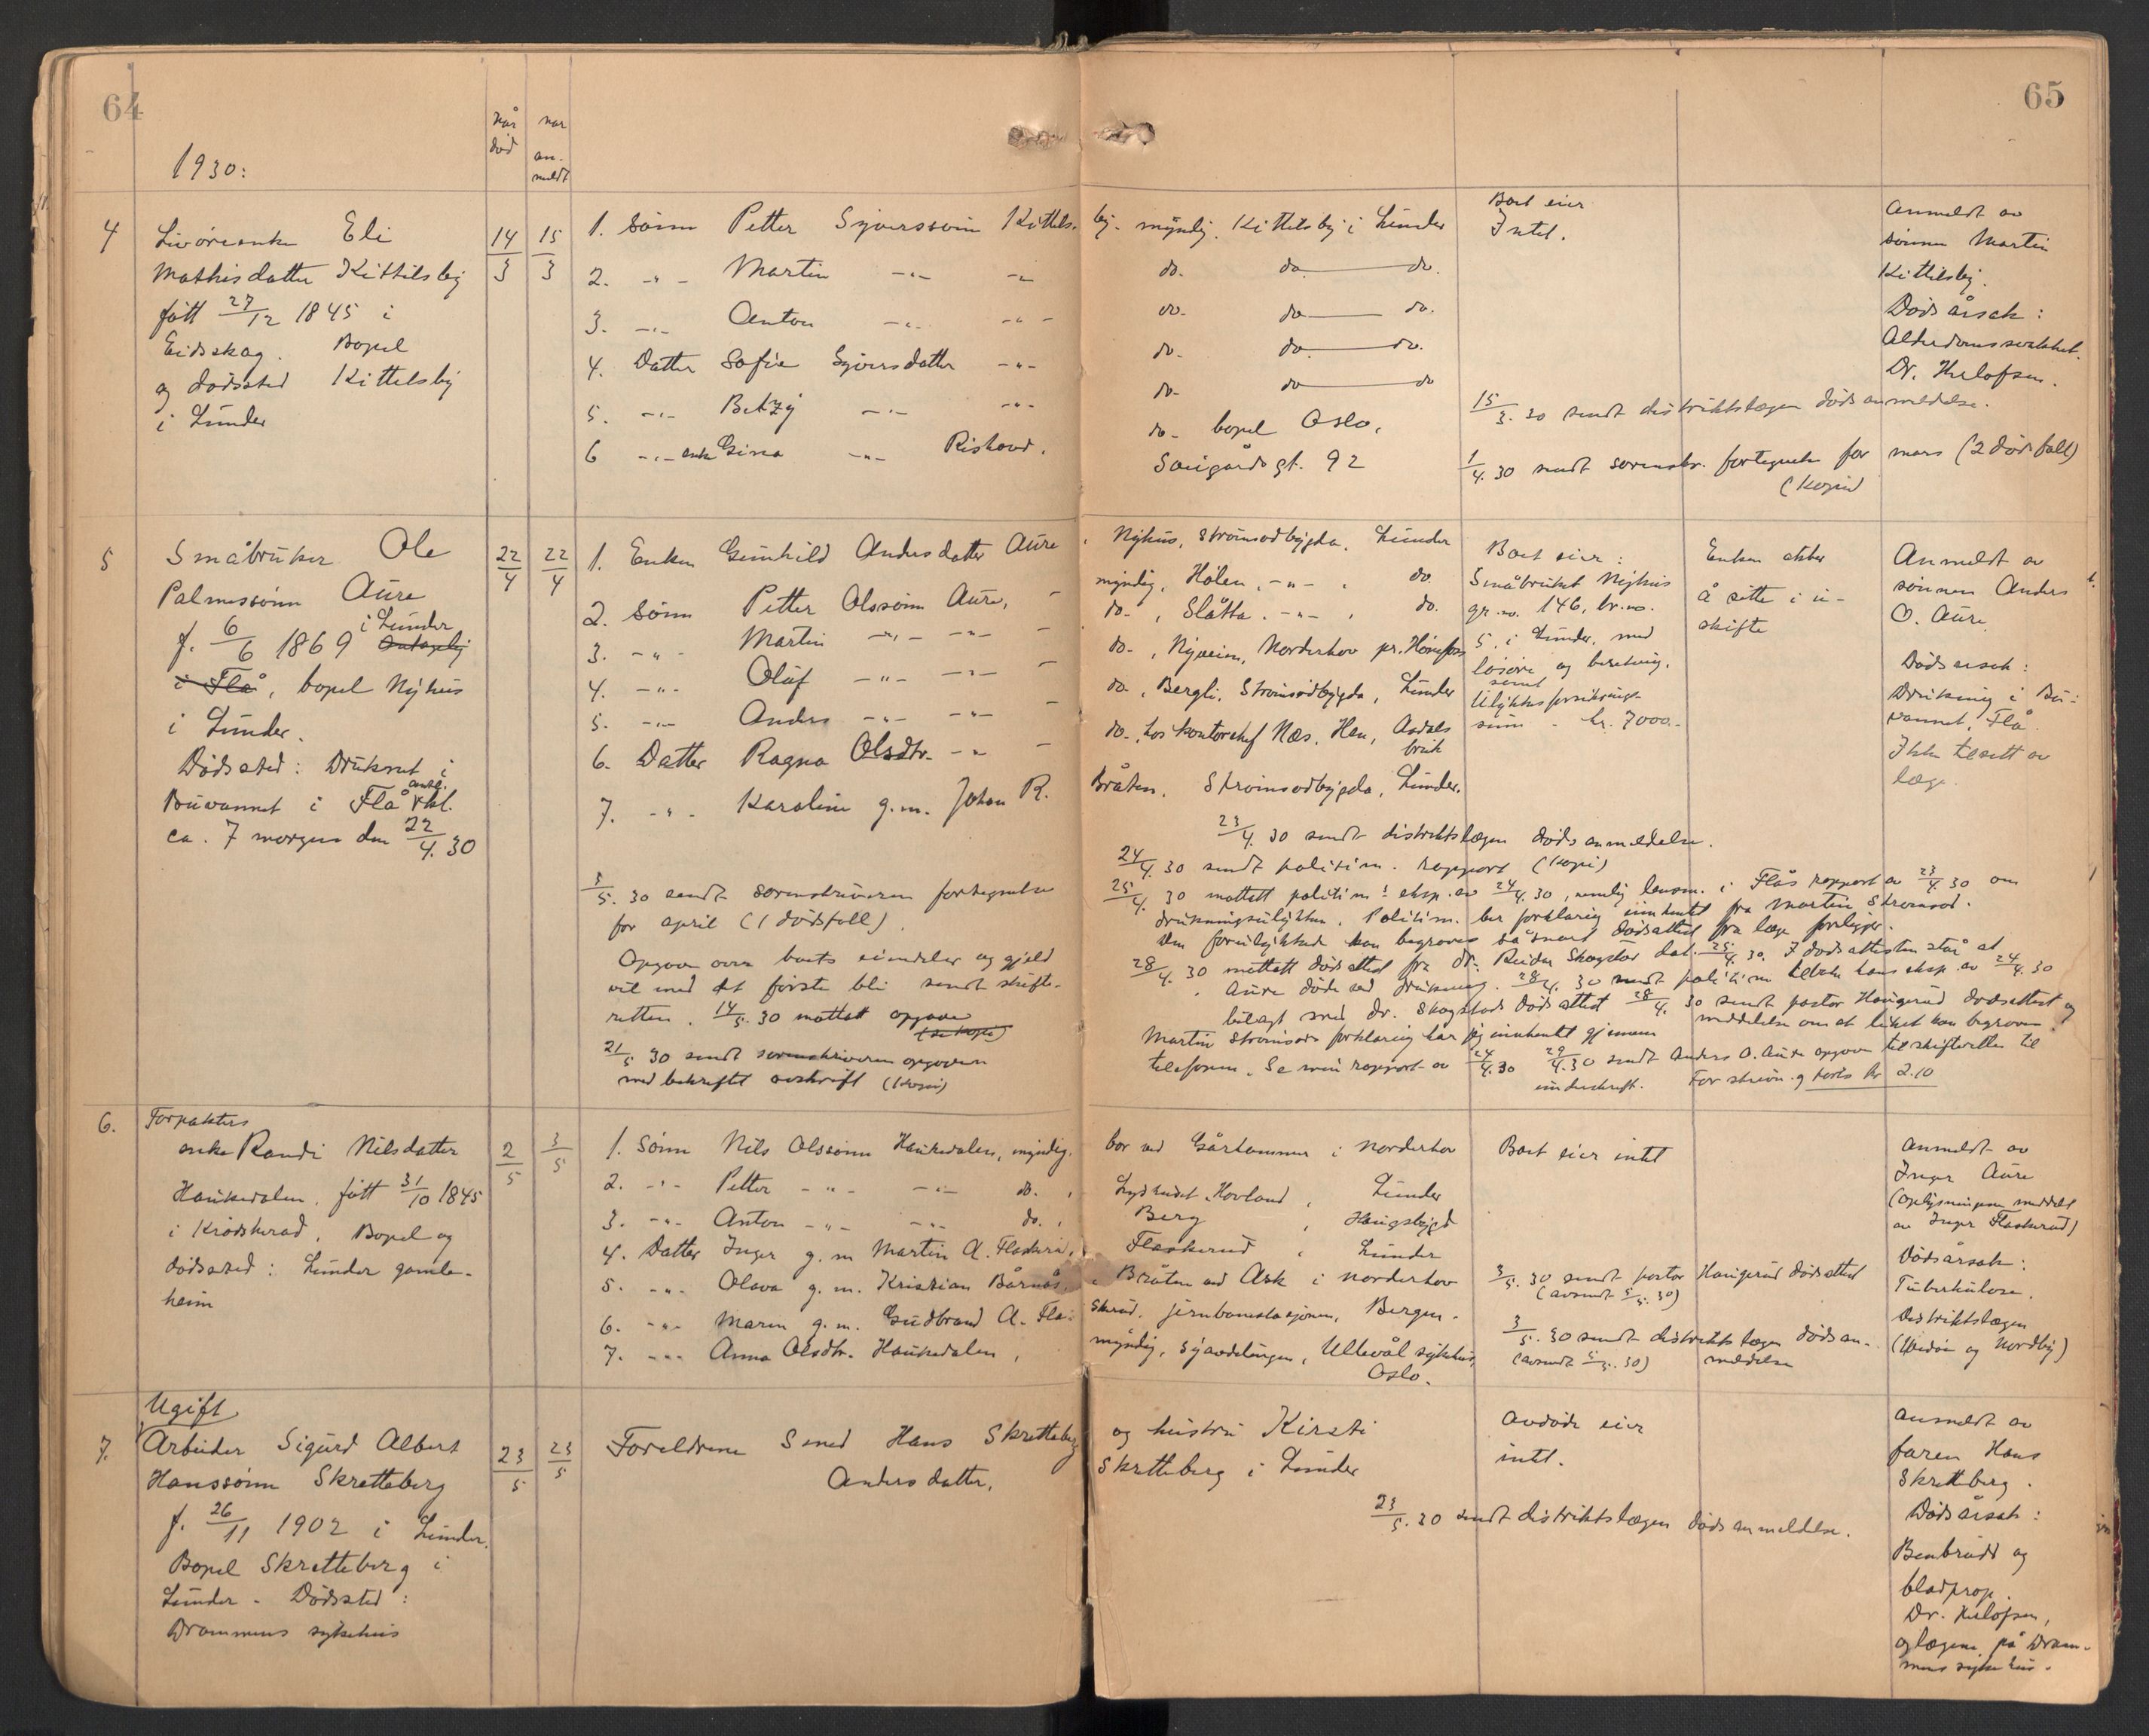 64
65
1930:
Når
død
når
an-
meldt
4
Livøreenke Eli
Mathisdatter Kittilsby
født 27/12 1845 i
Eidskog. Bopel
og dødssted Kittelsby
i Lunder
14/3
15/3
1. Sønn Petter Syverssønn Kittels-
by. myndig. Kittelsby i Lunder
2. -"- Martin -"- -"-
do. do. do.
3. -"- Anton -"- -"-
do. do. do.
4. Datter Sofie Syversdatter -"-
do. do. do.
5. -"- Betzy -"- -"-
do. do. do
6 -"- enke Gina -"- Rishovd.
do. bopel Oslo,
gt. 92
Boet eier
Intet.
Anmeldt av
sønnen Martin
Kittilsby.
Dødsårsak:
Alderdomssvakhet.
Dr. Herlofsen.
15/3. 30 sendt distriktslægen dødsanmeldelse.
1/4. 30 sendt sorenskr. fortegnelse for mars (2 dødsfall)
(Kopi)
5
Småbruker Ole
Palmessønn Aure
f. 6/6 1869 i Lunder Antagelig
i Flå, bopel Nyhus
i Lunder.
Dødssted: Druknet i
Buvannet i Flå antl. kl.
ca. 7 morgen den 22/4. 30
22/4
22/4
1. Enken Gunhild Andersdatter Aure
, Nyhus, Strømsodbygda, Lunder
2. Sønn Petter Olssønn Aure, -
myndig, Holen, -"-, do.
3. -"- Martin -"- -"- -
do. , Slåtta. -"-, do.
4. -"- Oluf -"- -"- -
do. , Nyveien, Norderhov pr. Hønefoss
5. -"- Anders -"- -"-
do. , Bergli, Strømsodbygda, Lunder
6. Datter Ragna Olsdtr. -"- -
do., hos kontorchef Næs, Hen, Aadals
bruk
7. -"- Karoline g.m. Johan R.
Bråten, Strømsodbygda, Lunder.
Boet eier:
Småbruket Nyhus
gr. no. 146, br. no.
5. i Lunder, med
løsøre og besetning,
samt
Ulykkesforsikrings-
sum - kr. 7000.-
Enken akter
å sitte i u-
skifte
Anmeldt av
sønnen Anders
O. Aure.
Dødsårsak:
Drukning i Bu-
vannet, Flå.
Ikke tilsett av
læge.
23/4. 30 sendt distriktslægen dødsanmeldelse.
24/4. 30 sendt politim. rapport (Kopi)
25/4. 30 mottatt politim's eksp. av 24/4. 30, nemlig lensm. i Flås rapport av 23/4. 30 om
drukningsulykken. Politim. ber forklaring innhentet fra Martin Strømsod.
Den forulykkede kan begraves såsnart dødsattest fra læge foreligger.
28/4. 30 mottatt dødsattest fra dr. Reidar Skogstad dat. 25/4. 30. I dødsattesten står at
Aure døde ved drukning. 28/4. 30 sendt politim tilbake hans eksp. av 24/4. 30
bilagt med dr. Skogstads dødsattest 28/4. 30 sendt pastor Haugerud dødsattest og
meddelelse om at liket kan begraves.
Martin Strømsods forklaring har jeg innhentet gjennem
telefonen. Se min rapport av 24/4. 30 29/4. 30 sendt Anders O. Aure opgave til skifteretten til
underskrift. For skriv. og porto kr 2.10
3/5. 30 sendt sorenskriveren fortegnelse
for april (1 dødsfall).
Opgave over boets eiendeler og gjeld
vil med det første bli sendt skifte-
retten. 14/5. 30 mottatt opgave
(se kopi)
21/5 30 sendt sorenskriveren opgaven
med bekreftet avskrift (Kopi)
6.
Forpakters
enke Randi Nilsdatter
Haukedalen, født 31/10 1845
i Krødsherad, Bopel og
dødssted: Lunder gamle-
heim
2/5
3/5
1. Sønn Nils Olssønn Haukedalen, myndig.
bor ved Gårhammer i Norderhov
2. -"- Petter -"- -"- do. ,
Hovland, Lunder
3. -"- Anton -"- -"- do. ,
Berg , Haugsbygd
4. Datter Inger g.m Martin A. Flaskerud,
Flaskerud , Lunder
5. -"- Olava g. m. Kristian Bårnås,
, Bråten ved Ask i Norderhov
6. -"- Maren g.m. Gudbrand A. Fla-
skerud, jernbanestasjonen, Bergen.
7. -"- Anna Olsdtr. Haukedalen,
myndig, syavdelingen, Ullevål sykehus,
Oslo.
Boet eier intet
3/5. 30 sendt pastor Haugerud dødsattest
(avsendt 5/5. 30)
3/5. 30 sendt distriktslægen dødsan-
(avsendt 5/5. 30) meldelse
Anmeldt av
Inger Aure
(oplysningene meddelt
av Inger Flaskerud)
Dødsårsak:
Tuberkulose.
Distriktslægen
( og Nordby)
7.
Ugift
Arbeider Sigurd Albert
Hanssønn Skretteberg
f. 26/11 1902 i Lunder.
Bopel Skretteberg i
Lunder - Dødssted:
Drammens sykehus
23/5
23/5
Foreldrene Smed Hans Skretteberg
og hustru Kirsti
Andersdatter,
Skretteberg i Lunder
Avdøde eier
intet.
23/5. 30 sendt distriktslægen dødsanmeldelse.
Anmeldt av
faren Hans
Skretteberg.
Dødsårsak:
Benbrudd og
blodprop.
Dr. Herlofsen,
og lægene på Dram-
mens sykehus.